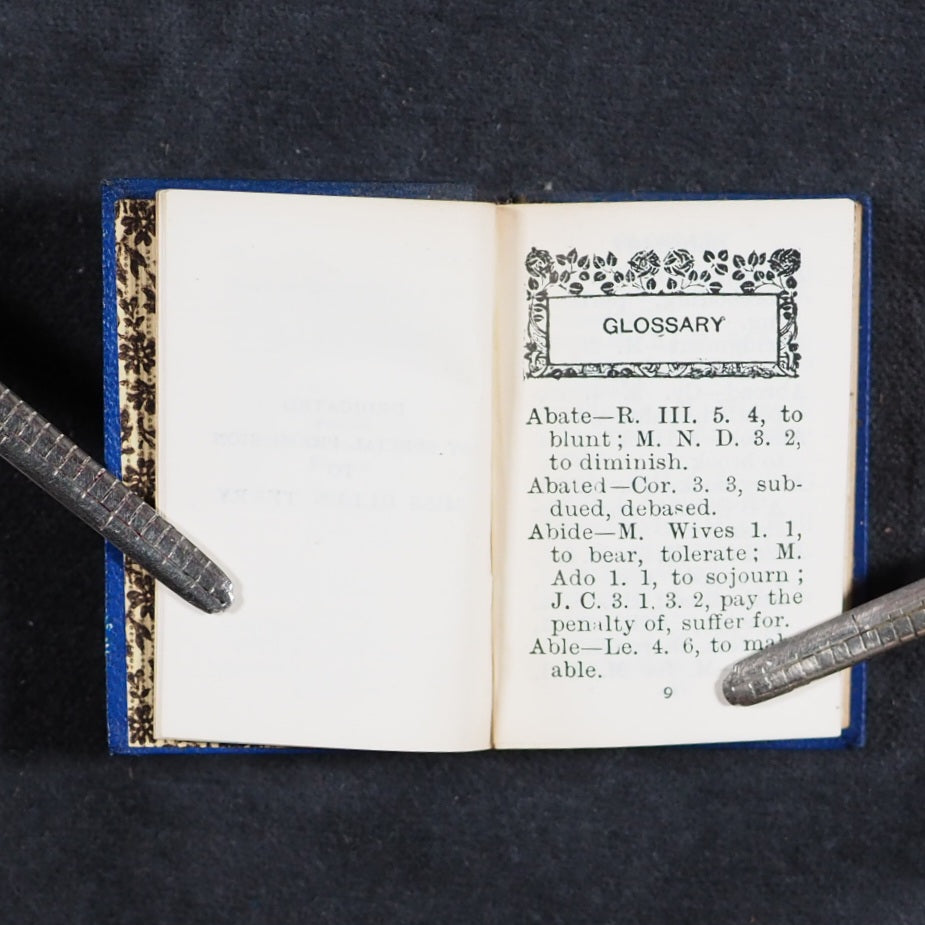 GLOSSARY
Abate—R. III. 5. 4, to
blunt; M. N. D. 3. 2,
to diminish.
Abated—Cor. 3. 3, sub-
dued, debased.
Abide—M. Wives 1. 1,
to bear, tolerate; M.
Ado 1. 1, to sojourn;
J. C. 3. 1. 3. 2, pay the
penalty of, suffer for.
Able—Le. 4. 6, to
able.
9